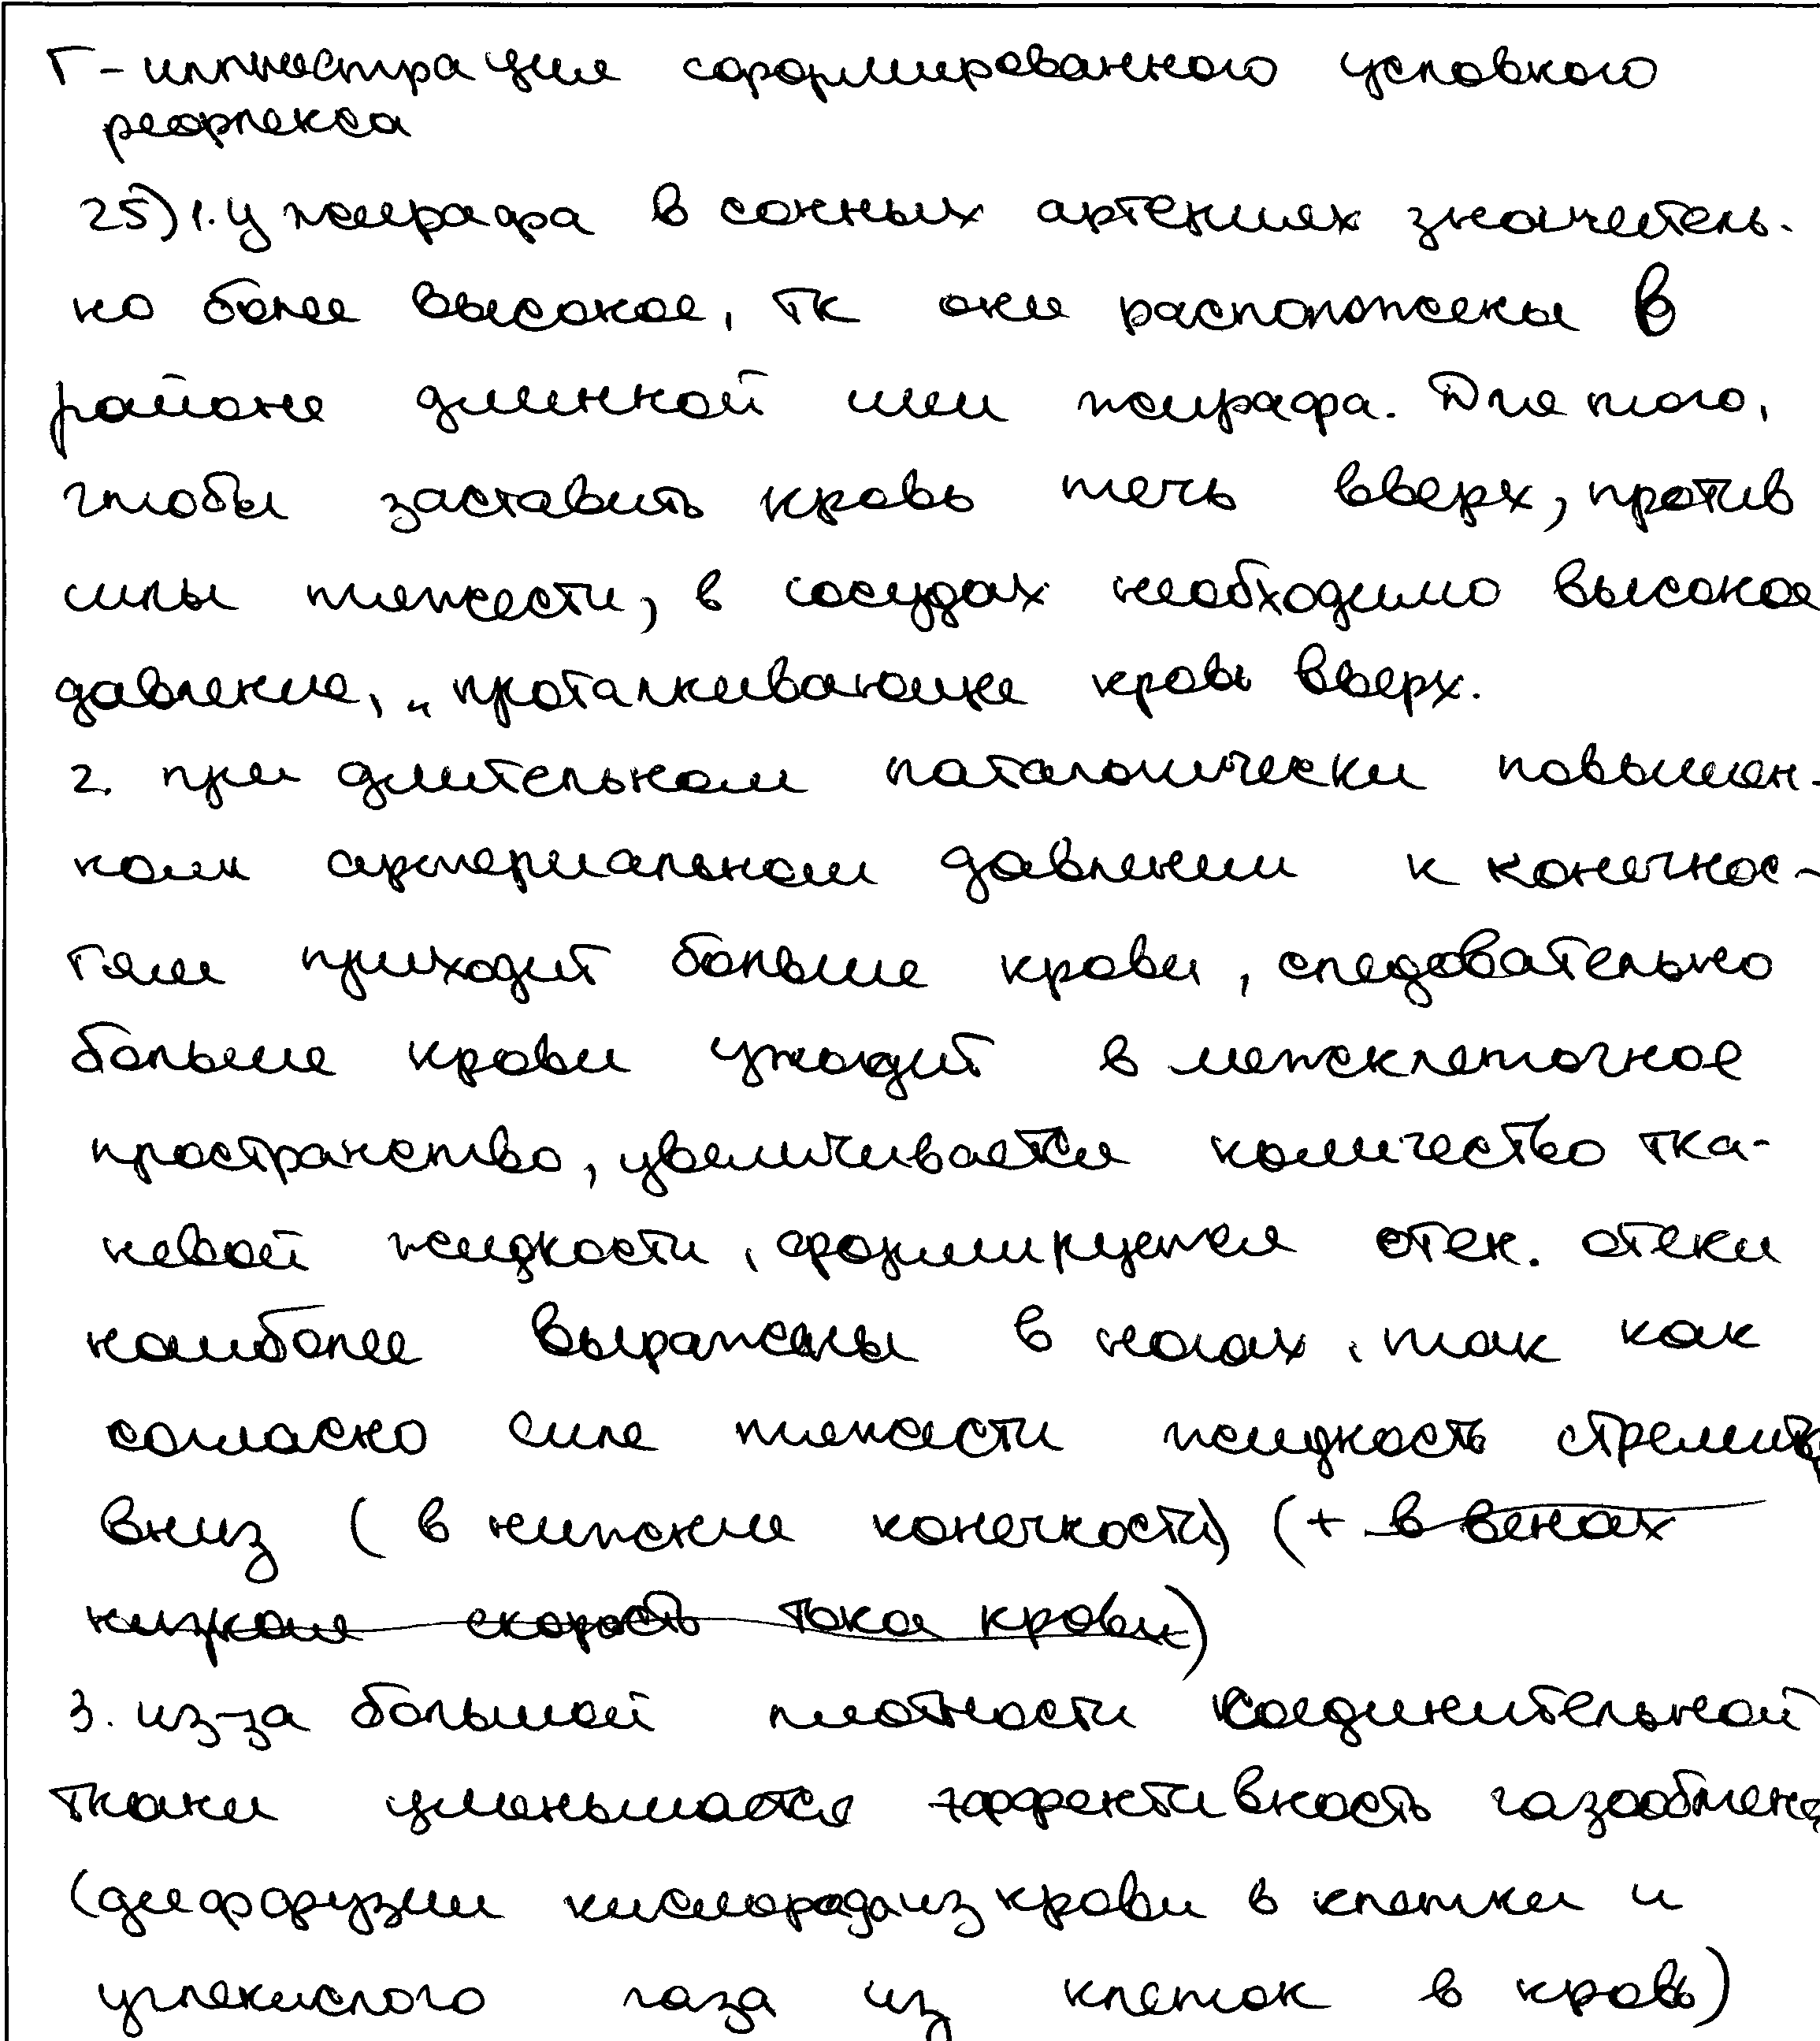 Г - иллюстрация сформированного условного
рефлекса
25) 1. у жирафа в сонных артениях значитель-
но более высокое, тк они расположены в
районе длинной шеи жирафа. Для того,
чтобы заставить кровь течь вверх, против
силы тяжести, в сосудах необходимо высокое
давление, "проталкивающие кровь вверх.
2. при длительном паталогически повышен-
ном артериальном давлении к конечнос-
тям приходит больше крови, следовательно
больше крови уходит в межклеточное
пространство, увеличивается количество тка-
невой жидкости, формируется отек. отеки
наиболее выражены в ногах, так как
согласно силе тяжести жидкость стремить
вниз (в нижние конечности) (+ в венах
низкая скорость тока крови)
3. из-за большой плотности соединительной
ткани уменьшается эффективность газообмена
(диффузии кислорода из крови в клетки и
углекислого газа из клеток в кровь)